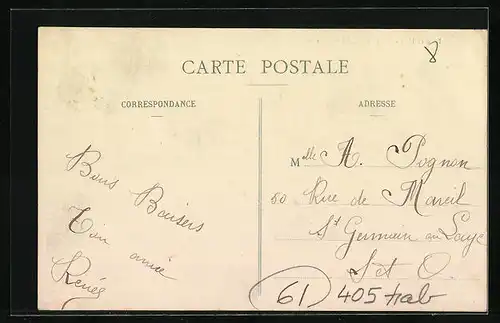 8
CARTE POSTALE
CORRESPONDANCE
ADRESSE
Bons Baisers
Ton amie
Renée
Melle A. Pognon
80 Rue de Mareil
St Germain en Laye
S et O.
61 405